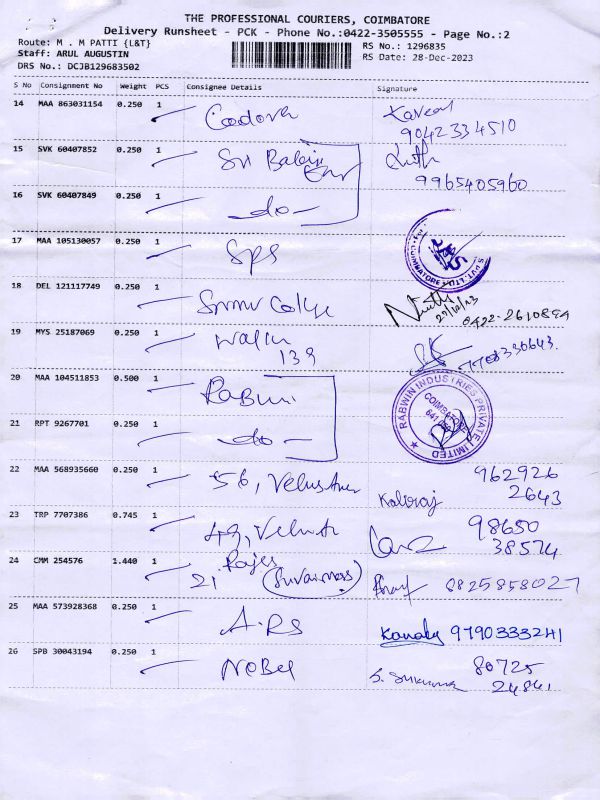 THE PROFESSIONAL COURIERS, COIMBATORE
Delivery Runsheet - PCK - Phone No.:0422-3505555 - Page No.:2
Route: M . M PATTI {L&T}
RS No.: 1296835
Staff: ARUL AUGUSTIN
RS Date: 28-Dec-2023
DRS No.: DCJB129683502
S No Consignment No Weight PCS Consignee Details Signature
14 MAA 863031154 0.250 1
9042334510
15 SVK 60407852 0.250 1 Sri Balaji
9965405960
16 SVK 60407849 0.250 1 -do-
17 MAA 105130057 0.250 1 SPS
COIMBATORE
18 DEL 121117749 0.250 1
0422-2610894
19 MYS 25187069 0.250 1
139
20 MAA 104511853 0.500 1
RABWIN INDUSTRIES PRIVATE LIMITED
COIMBATORE
21 RPT 9267701 0.250 1 -do-
22 MAA 568935660 0.250 1 56, 962926
Kaliraj 2643
23 TRP 7707386 0.745 1 49, 98650
38574
24 CMM 254576 1.440 1 Rajes
21
25 MAA 573928368 0.250 1 A.RS 9790333241
26 SPB 30043194 0.250 1 Nobel 80725
24841